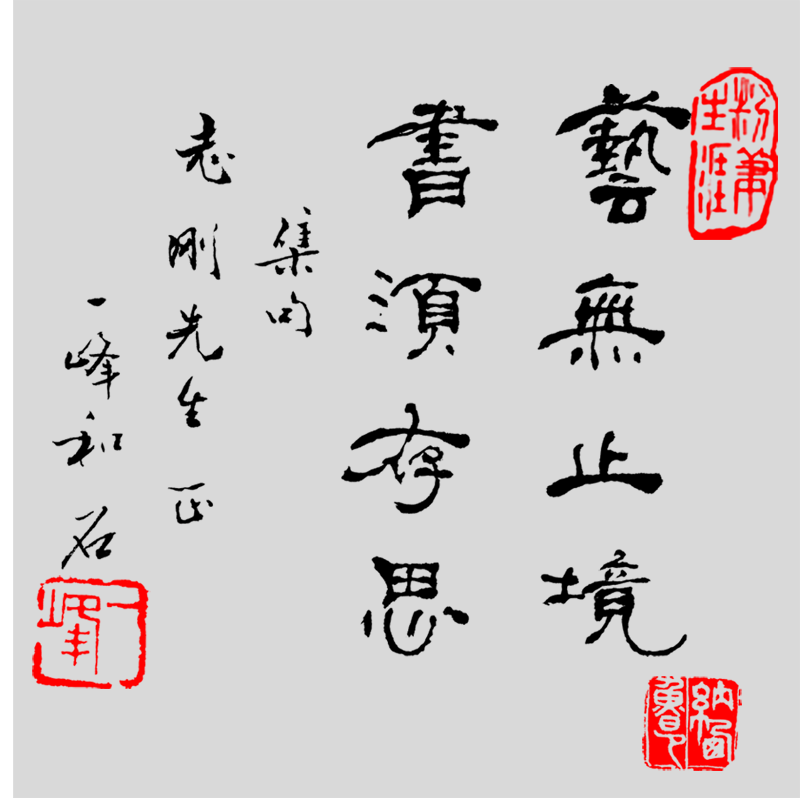 粉筆生涯
藝無止境
書須存思
集句
志刚先生正
一峰和石
一峰